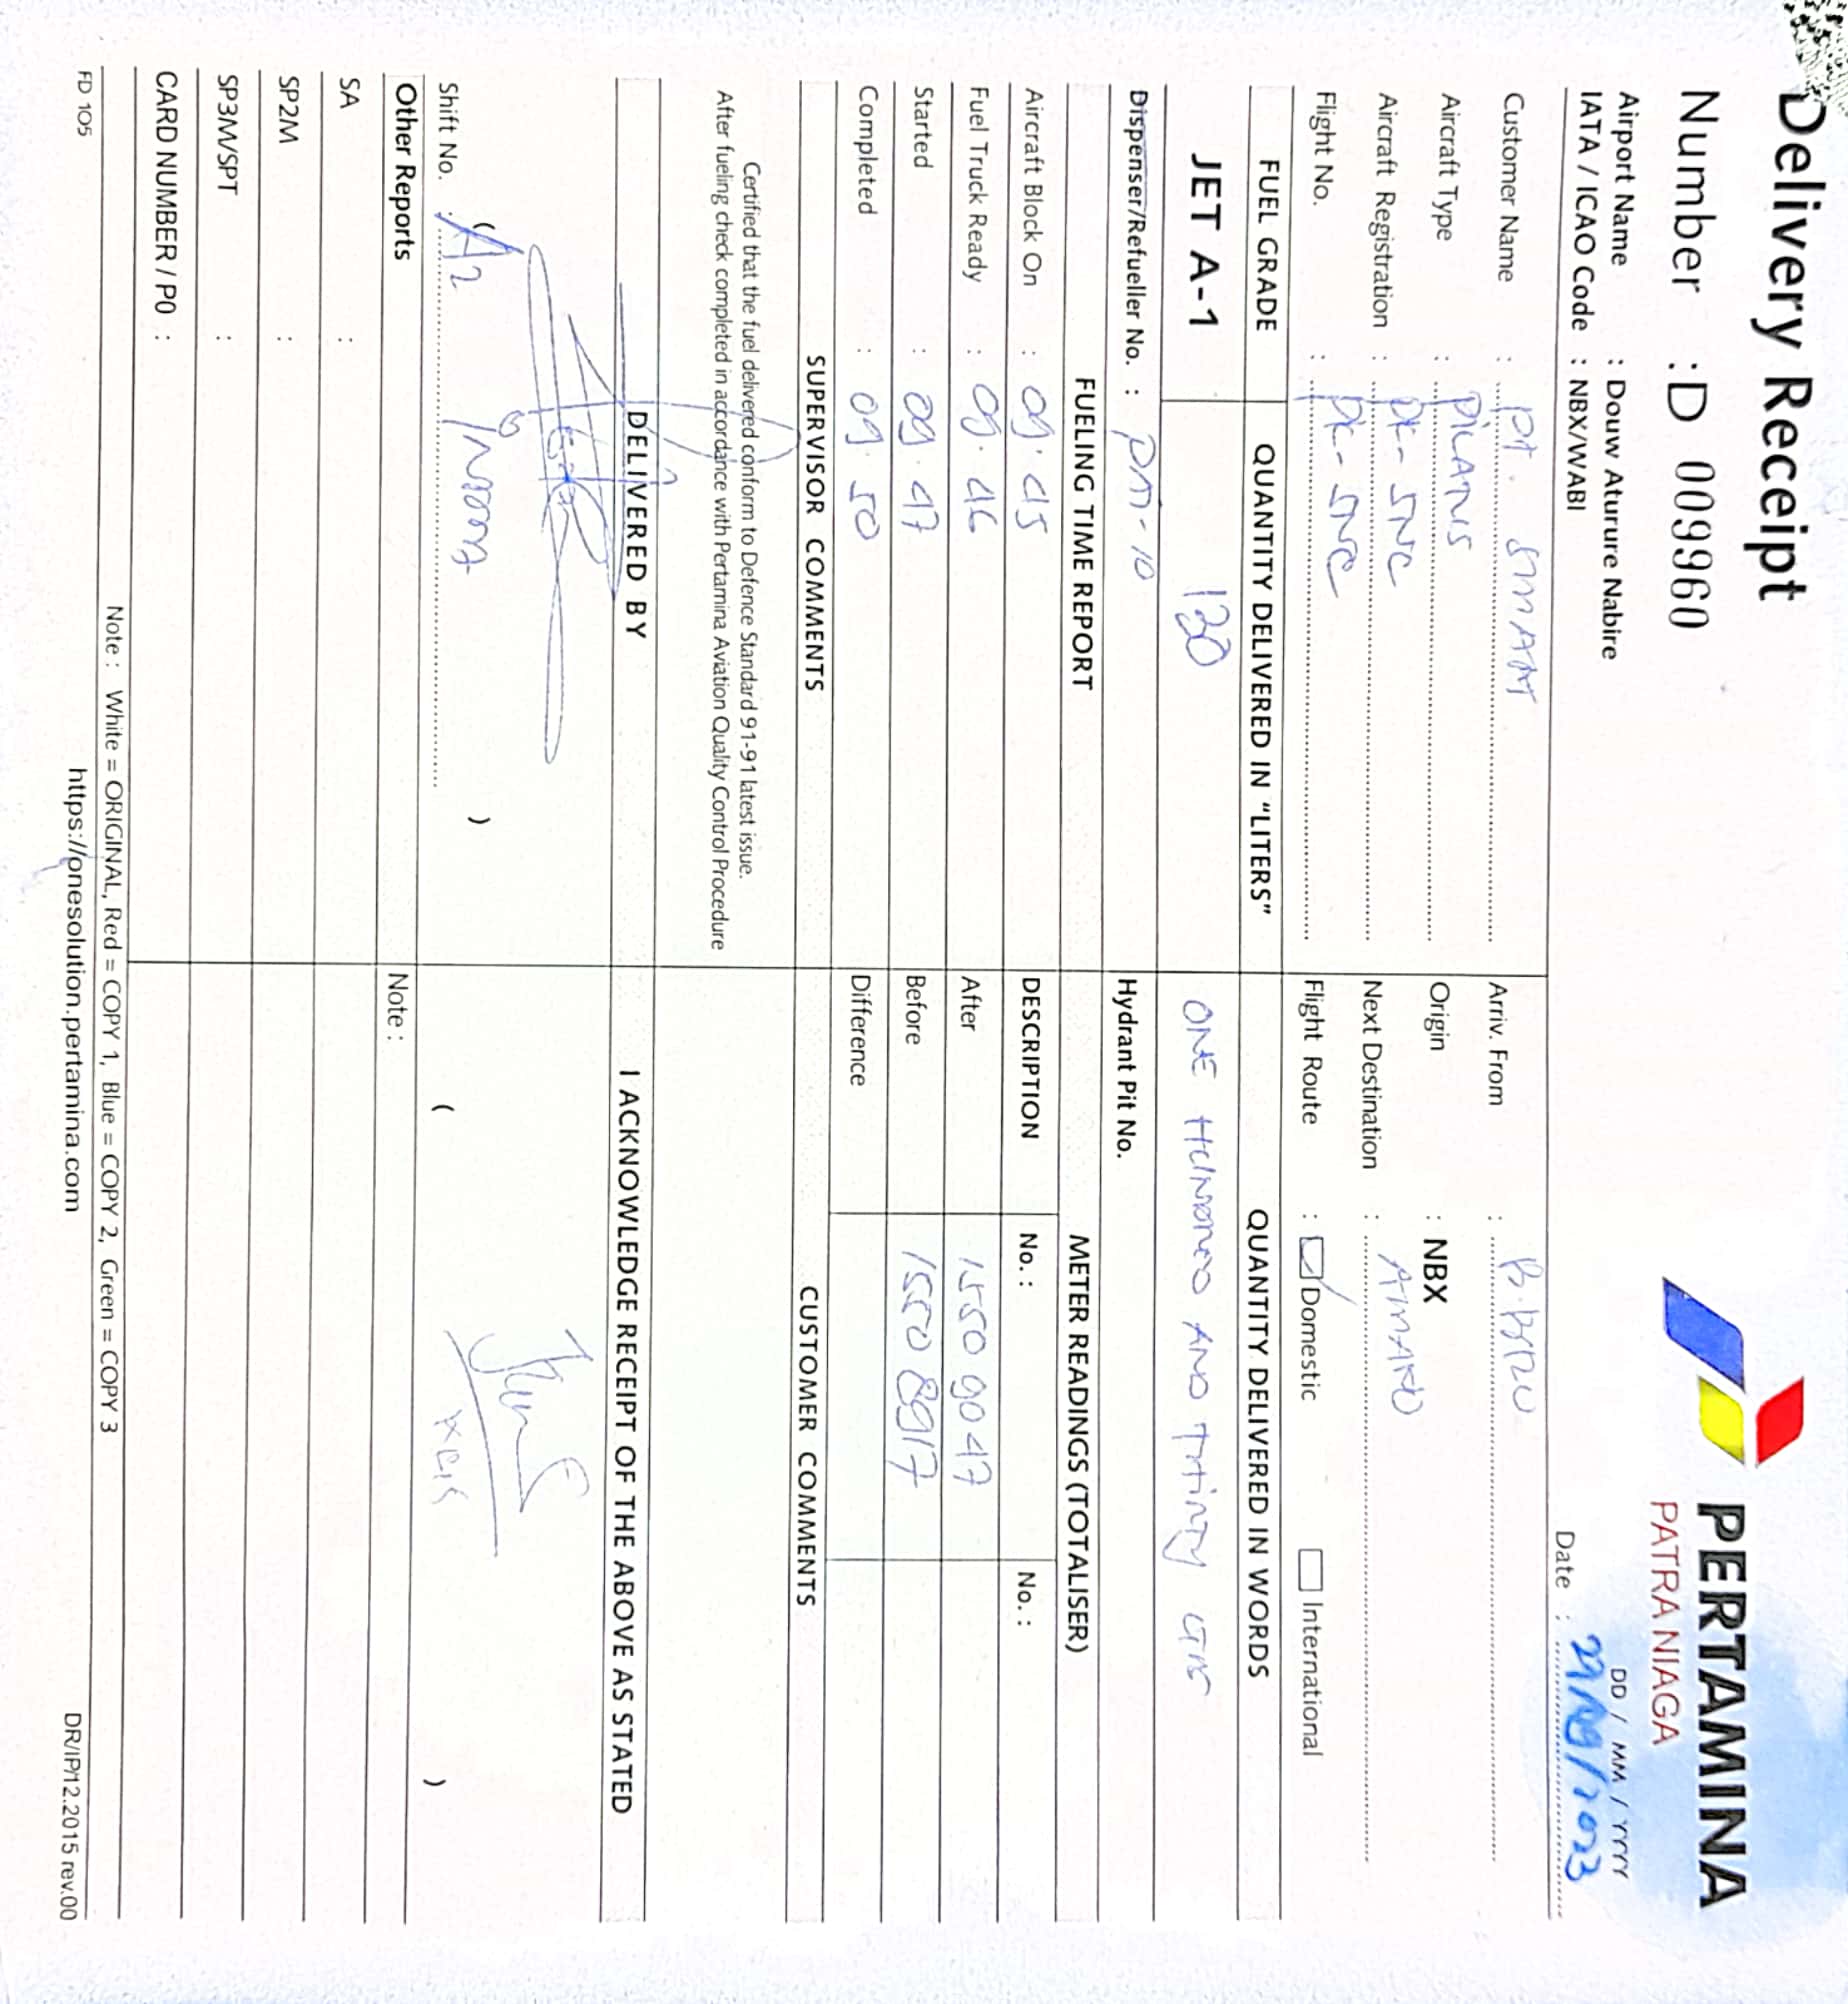 Delivery Receipt
Number : D 009960
PERTAMINA
PATRA NIAGA
Airport Name : Douw Aturure Nabire
IATA / ICAO Code : NBX/WABI
DD / MM / YYYY
Date :
Customer Name : PT. SMART
Aircraft Type : PILATUS
Aircraft Registration : PK-SNC
Flight No. : PK-SNC
Arriv. From :
Origin : NBX
Next Destination :
Flight Route : Domestic International
FUEL GRADE QUANTITY DELIVERED IN "LITERS" QUANTITY DELIVERED IN WORDS
JET A-1 130 ONE HUNDRED AND THIRTY LTRS
Dispenser/Refueller No. : Hydrant Pit No.
FUELING TIME REPORT METER READINGS (TOTALISER)
Aircraft Block On : 09.45 DESCRIPTION No. : No. :
Fuel Truck Ready : 09.46 After 15509047
Started : 09.47 Before 15508917
Completed : 09.50 Difference
SUPERVISOR COMMENTS CUSTOMER COMMENTS
Certified that the fuel delivered conform to Defence Standard 91-91 latest issue.
After fueling check completed in accordance with Pertamina Aviation Quality Control Procedure
DELIVERED BY I ACKNOWLEDGE RECEIPT OF THE ABOVE AS STATED
( ) ( )
Shift No. :
Other Reports Note :
SA :
SP2M :
SP3M/SPT :
CARD NUMBER / PO :
Note : White = ORIGINAL, Red = COPY 1, Blue = COPY 2, Green = COPY 3
FD 105 https://onesolution.pertamina.com DR/IP/12.2015 rev.00